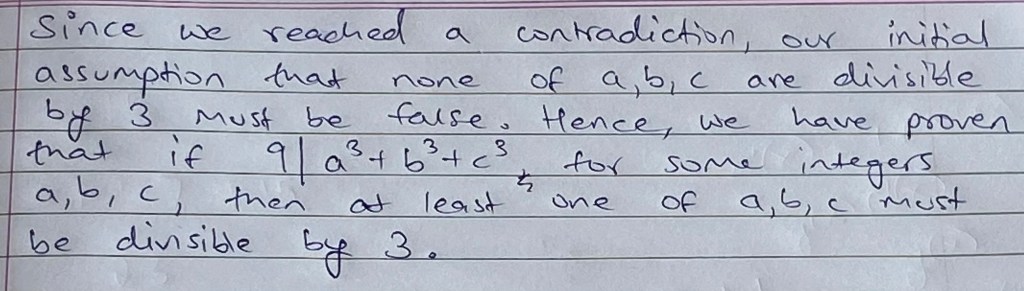 Since we reached a contradiction, our initial
assumption that none of a, b, c are divisible
by 3 must be false. Hence, we have proven
that if 9 | a³ + b³ + c³, for some integers
a, b, c, then at least one of a, b, c must
be divisible by 3.